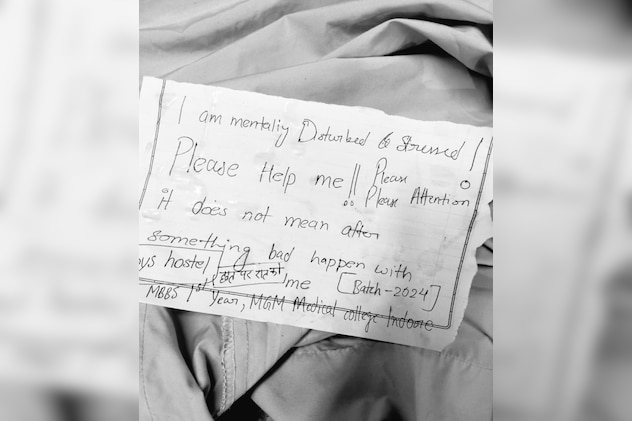 I am mentaliy Disturbed & Stressed !
Please Help me !! Please
Please Attention
it does not mean after
something bad happen with
oys hostel me [Batch-2024]
MBBS 1st Year, MGM Medical college Indore